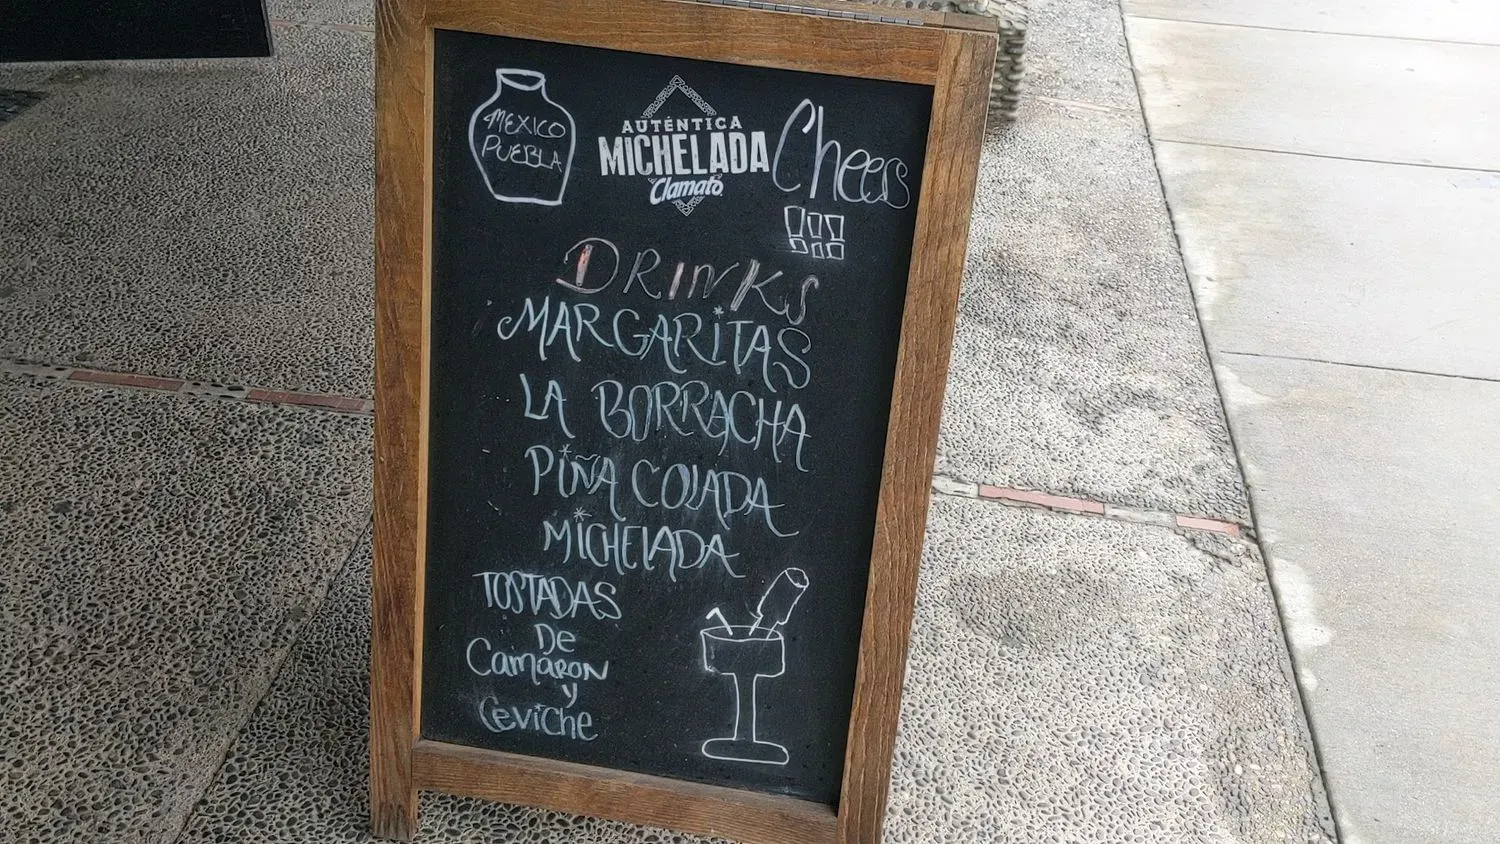 MEXICO
PUEBLA
AUTÉNTICA
MICHELADA
Clamato
Cheers
!!!
DRINKS
MARGARITAS
LA BORRACHA
PIÑA COLADA
MICHELADA
TOSTADAS
De
Camaron
y
Ceviche